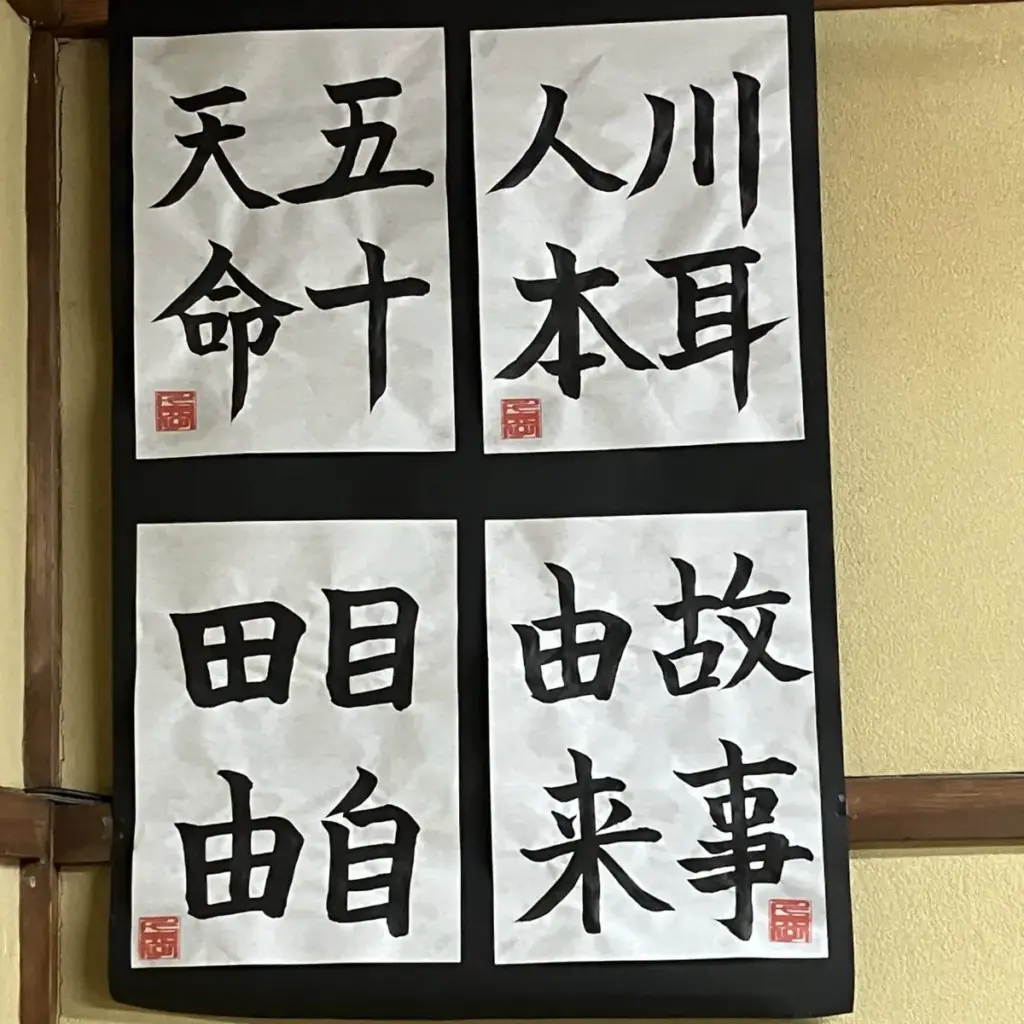 川耳
人本
五十
天命
故事
由来
目自
田由